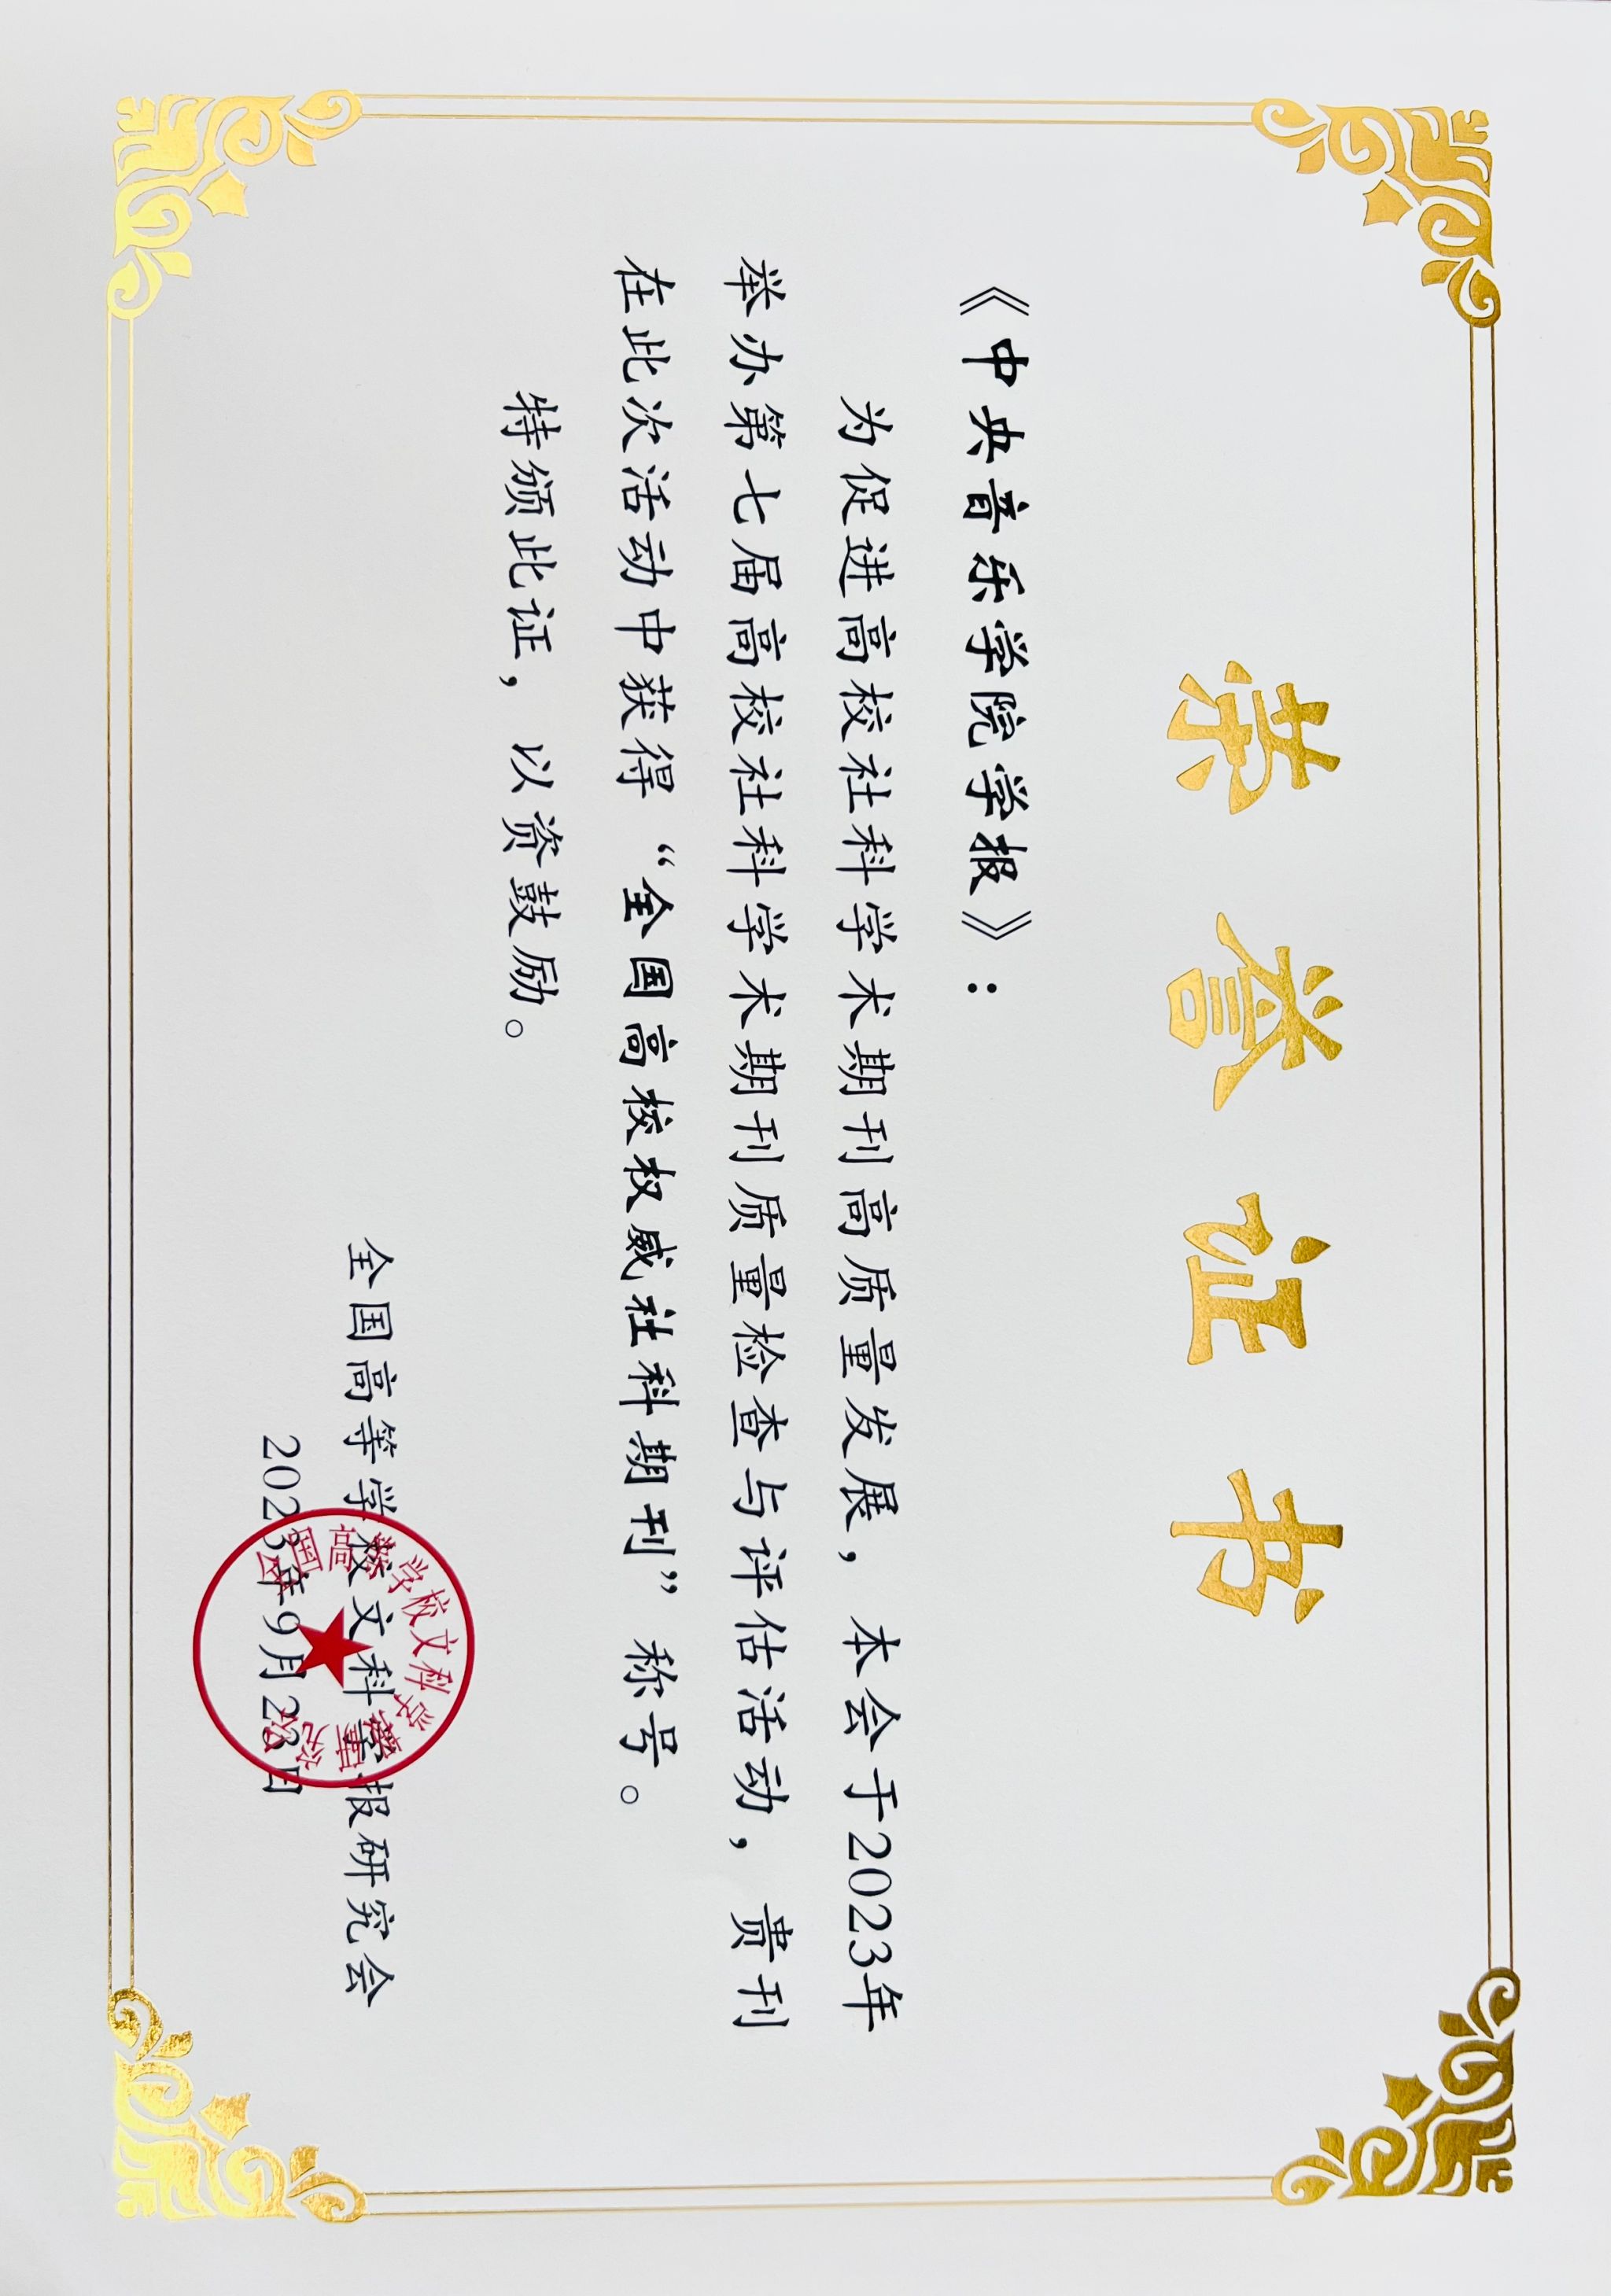 荣誉证书
《中央音乐学院学报》：
为促进高校社科学术期刊高质量发展，本会于2023年
举办第七届高校社科学术期刊质量检查与评估活动，贵刊
在此次活动中获得“全国高校权威社科期刊”称号。
特颁此证，以资鼓励。
全国高等学校文科学报研究会
2023年9月23日
全国高等学校文科学报研究会